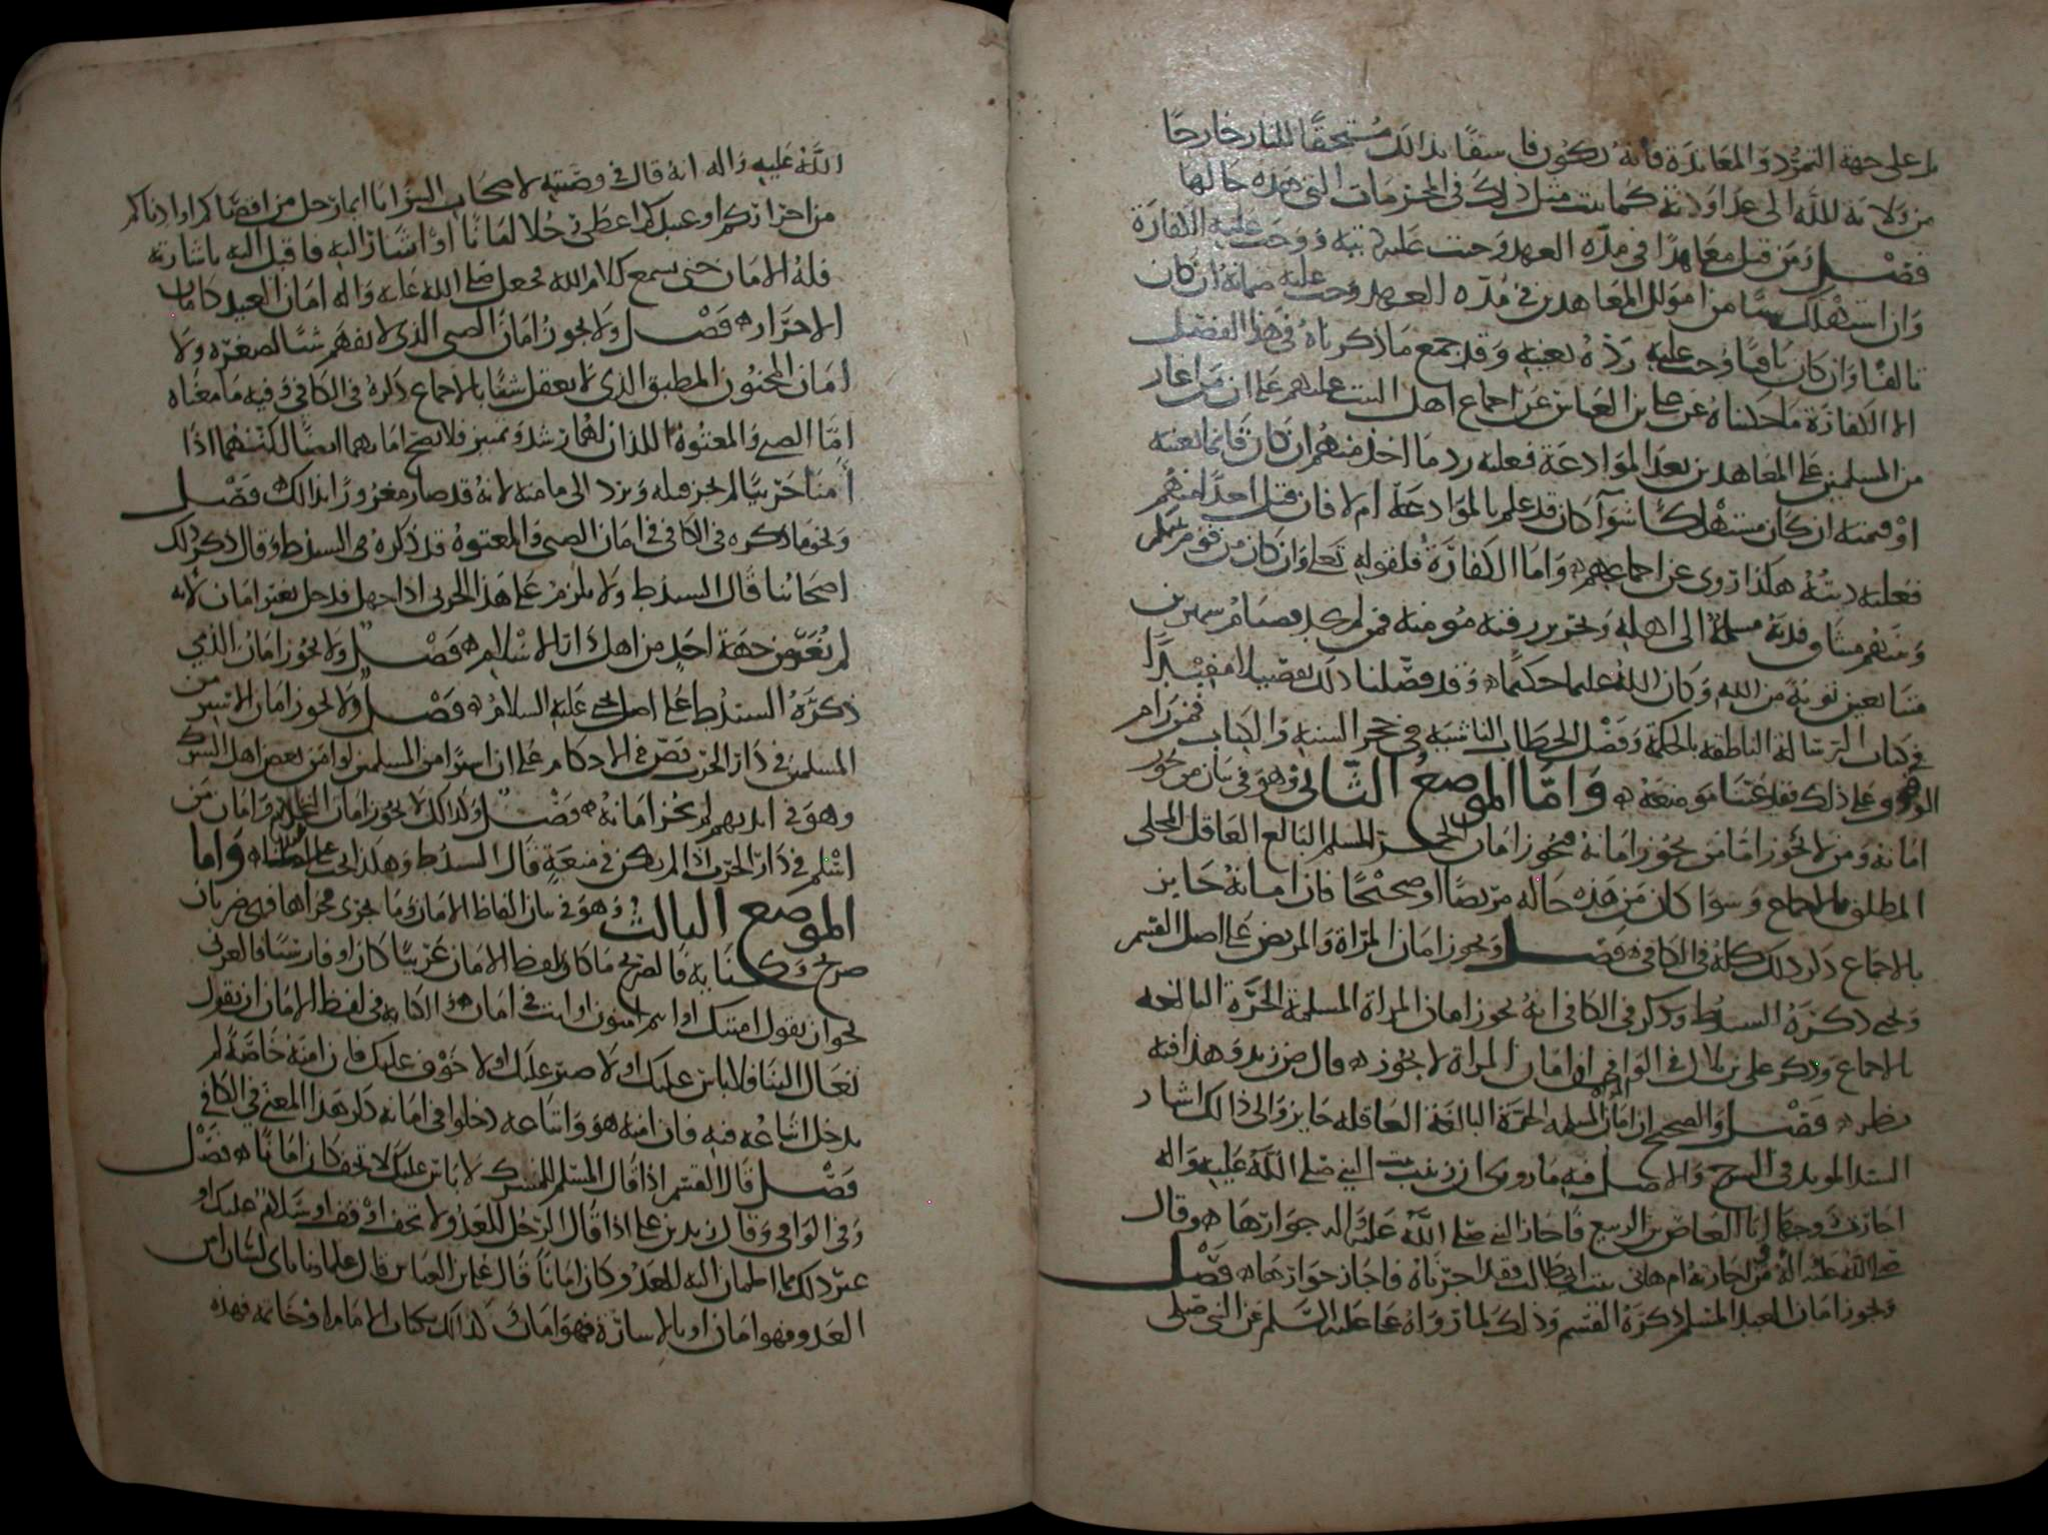 بل على جهة التمرد والمعاندة فانه يكون فاسقا بذالك مستحقا للنار خارجا
من ولاية لله الى عداوته كما يثبت مثل ذلك في المحرمات التي هذه حالها
فصل ومن قتل معاهدا في مدة العهد وجبت عليه ديته ووجبت عليه الكفارة
وان استهلك شيا من اموال المعاهدين في مدة العهد وجب عليه ضمانه ان كان
تالفا وان كان باقيا وجب عليه رده بعينه وقد جمع ما ذكرناه في هذا الفصل
الا الكفارة ما حكيناه عن علي بن العباس عن اجماع اهل البيت عليهم على ان من اغار
من المسلمين على المعاهدين بعد الموادعة فعليه رد ما اخذ منهم ان كان قائما بعينه
او قيمته ان كان مستهلكا سوآ كان قد علم بالموادعة ام لا فان قتل احدا منهم
فعليه ديته هكذا روى عن اجماعهم واما الكفارة فلقوله تعلى وان كان من قوم بينكم
وبينهم ميثاق فدية مسلمة الى اهله وتحرير رقبة مومنة فمن لم يجد فصيام شهرين
متتابعين توبة من الله وكان الله عليما حكيما وقد فصلنا ذلك تفصيلا
في كتاب الرسالة الناطقة بالحكمة وفصل الخطاب الناشية في حجر السنة والكتاب فمن رام
الوقوف على ذلك موضعه واما الموضع الثاني وهو في بيان من يجوز
امانه ومن لا يجوز امانه فيجوز امان الحر المسلم البالع العاقل المخلى
المطلق بالاجماع وسوا كان من هذه حاله مريضا او صحيحا فان امانه جايز
بالاجماع ذكر ذلك كله في الكافي فصل ويجوز امان المراة والمريض على اصل القسم
ويحيى ذكره السيد ط وذكر في الكافي انه يجوز امان المراة المسلمة الحرة البالغه
بالاجماع وذكر على بن بلال في الوافي ان امان المراة لا يجوز قال ض زيد وهذا فيه
نظر فصل والصحيح ان امان المسلمه الحرة البالغة العاقله جايز والى ذالك اشار
السيد المويد في الشرح والاصل فيه ما روى ان زينب بنت النبي صلى الله عليه واله
اجازت زوجها ابا العاص بن الربيع فاجاز النبي صلى الله عليه واله جوارها وقال
صلى الله عليه اله من اجارته ام هانى بنت ابي طالب فقد اجرناه فاجاز جوارها فصل
ويجوز امان العبد المسلم ذكره القسم وذلك لما رواه على عليه السلم عن النبي صلى
الله عليه واله انه قال في وصيته لاصحاب السرايا ايما رجل من اقصاكم او ادناكم
من احراركم او عبيدكم اعطى رجلا امانا او اشار اليه فاقبل اليه باشارته
فله الامان حتى يسمع كلام الله فجعل صلى الله عليه واله امان العبد كامان
الاحرار فصل ولا يجوز امان الصبي الذي لا يفهم شيا لصغره ولا
امان المجنون المطبق الذي لا يعقل شيئا بالاجماع ذكره في الكافي وفيه ما معناه
اما الصبي والمعتوه اللذان لهما رشد وتمييز فلا يصح امانهما ايضا لكنهما اذا
أمنا حربيا لم يجز قتله ويرد الى مامنه لانه قد صار مغرورا بذالك فصل
ونحو ما ذكره في الكافي في امان الصبي والمعتوه قد ذكره في السيد ط وقال ذكر ذلك
اصحابنا قال السيد ط ولا يلزم على هذا الحربي اذا جهل فدخل بغير امان لانه
لم يغر من جهة احد من اهل دار الاسلام فصل ولا يجوز امان الذمي
ذكره السيد ط على اصل يحيى عليه السلام فصل ولا يجوز امان الاسير من
المسلمين في دار الحرب نص في الاحكام على ان اسيرا من المسلمين لو امن بعض اهل الشرك
وهو في ايديهم لم يجز امانه فصل وكذالك لا يجوز امان التجار وامان من
اسلم في دار الحرب اذا لم يكن في منعة قال السيد ط وهكذا يجب على اصلنا واما
الموضع الثالث وهو في بيان الفاظ الامان وما يجري مجراها فهي ضربان
صريح وكناية فالصريح ما كان بلفظ الامان عربيا كان او فارسيا فالعربي
نحو ان يقول امنتك او انتم امنون او انت في امان والكناية في لفظ الامان ان يقول
تعال الينا فلا باس عليك او لا ضير عليك او لا خوف عليك فان امنه خاصة لم
يدخل اتباعه فيه فان امنه هو واتباعه دخلوا في امانه ذكر هذا المعنى في الكافي
فصل قال القسم اذا قال المسلم للمشرك لا باس عليك لا تخف كان امانا فصل
وفي الوافي وقال زيد بن على اذا قال الرجل للعدو لا تخف او قف او سلام عليك او
غير ذلك مما اطمان اليه للعدو كان امانا قال على بن العباس قال علماونا باى لسان امن
العدو فهو امان او بالاشارة فهو امان كذالك بكتاب الامام او خاتمه فهذه